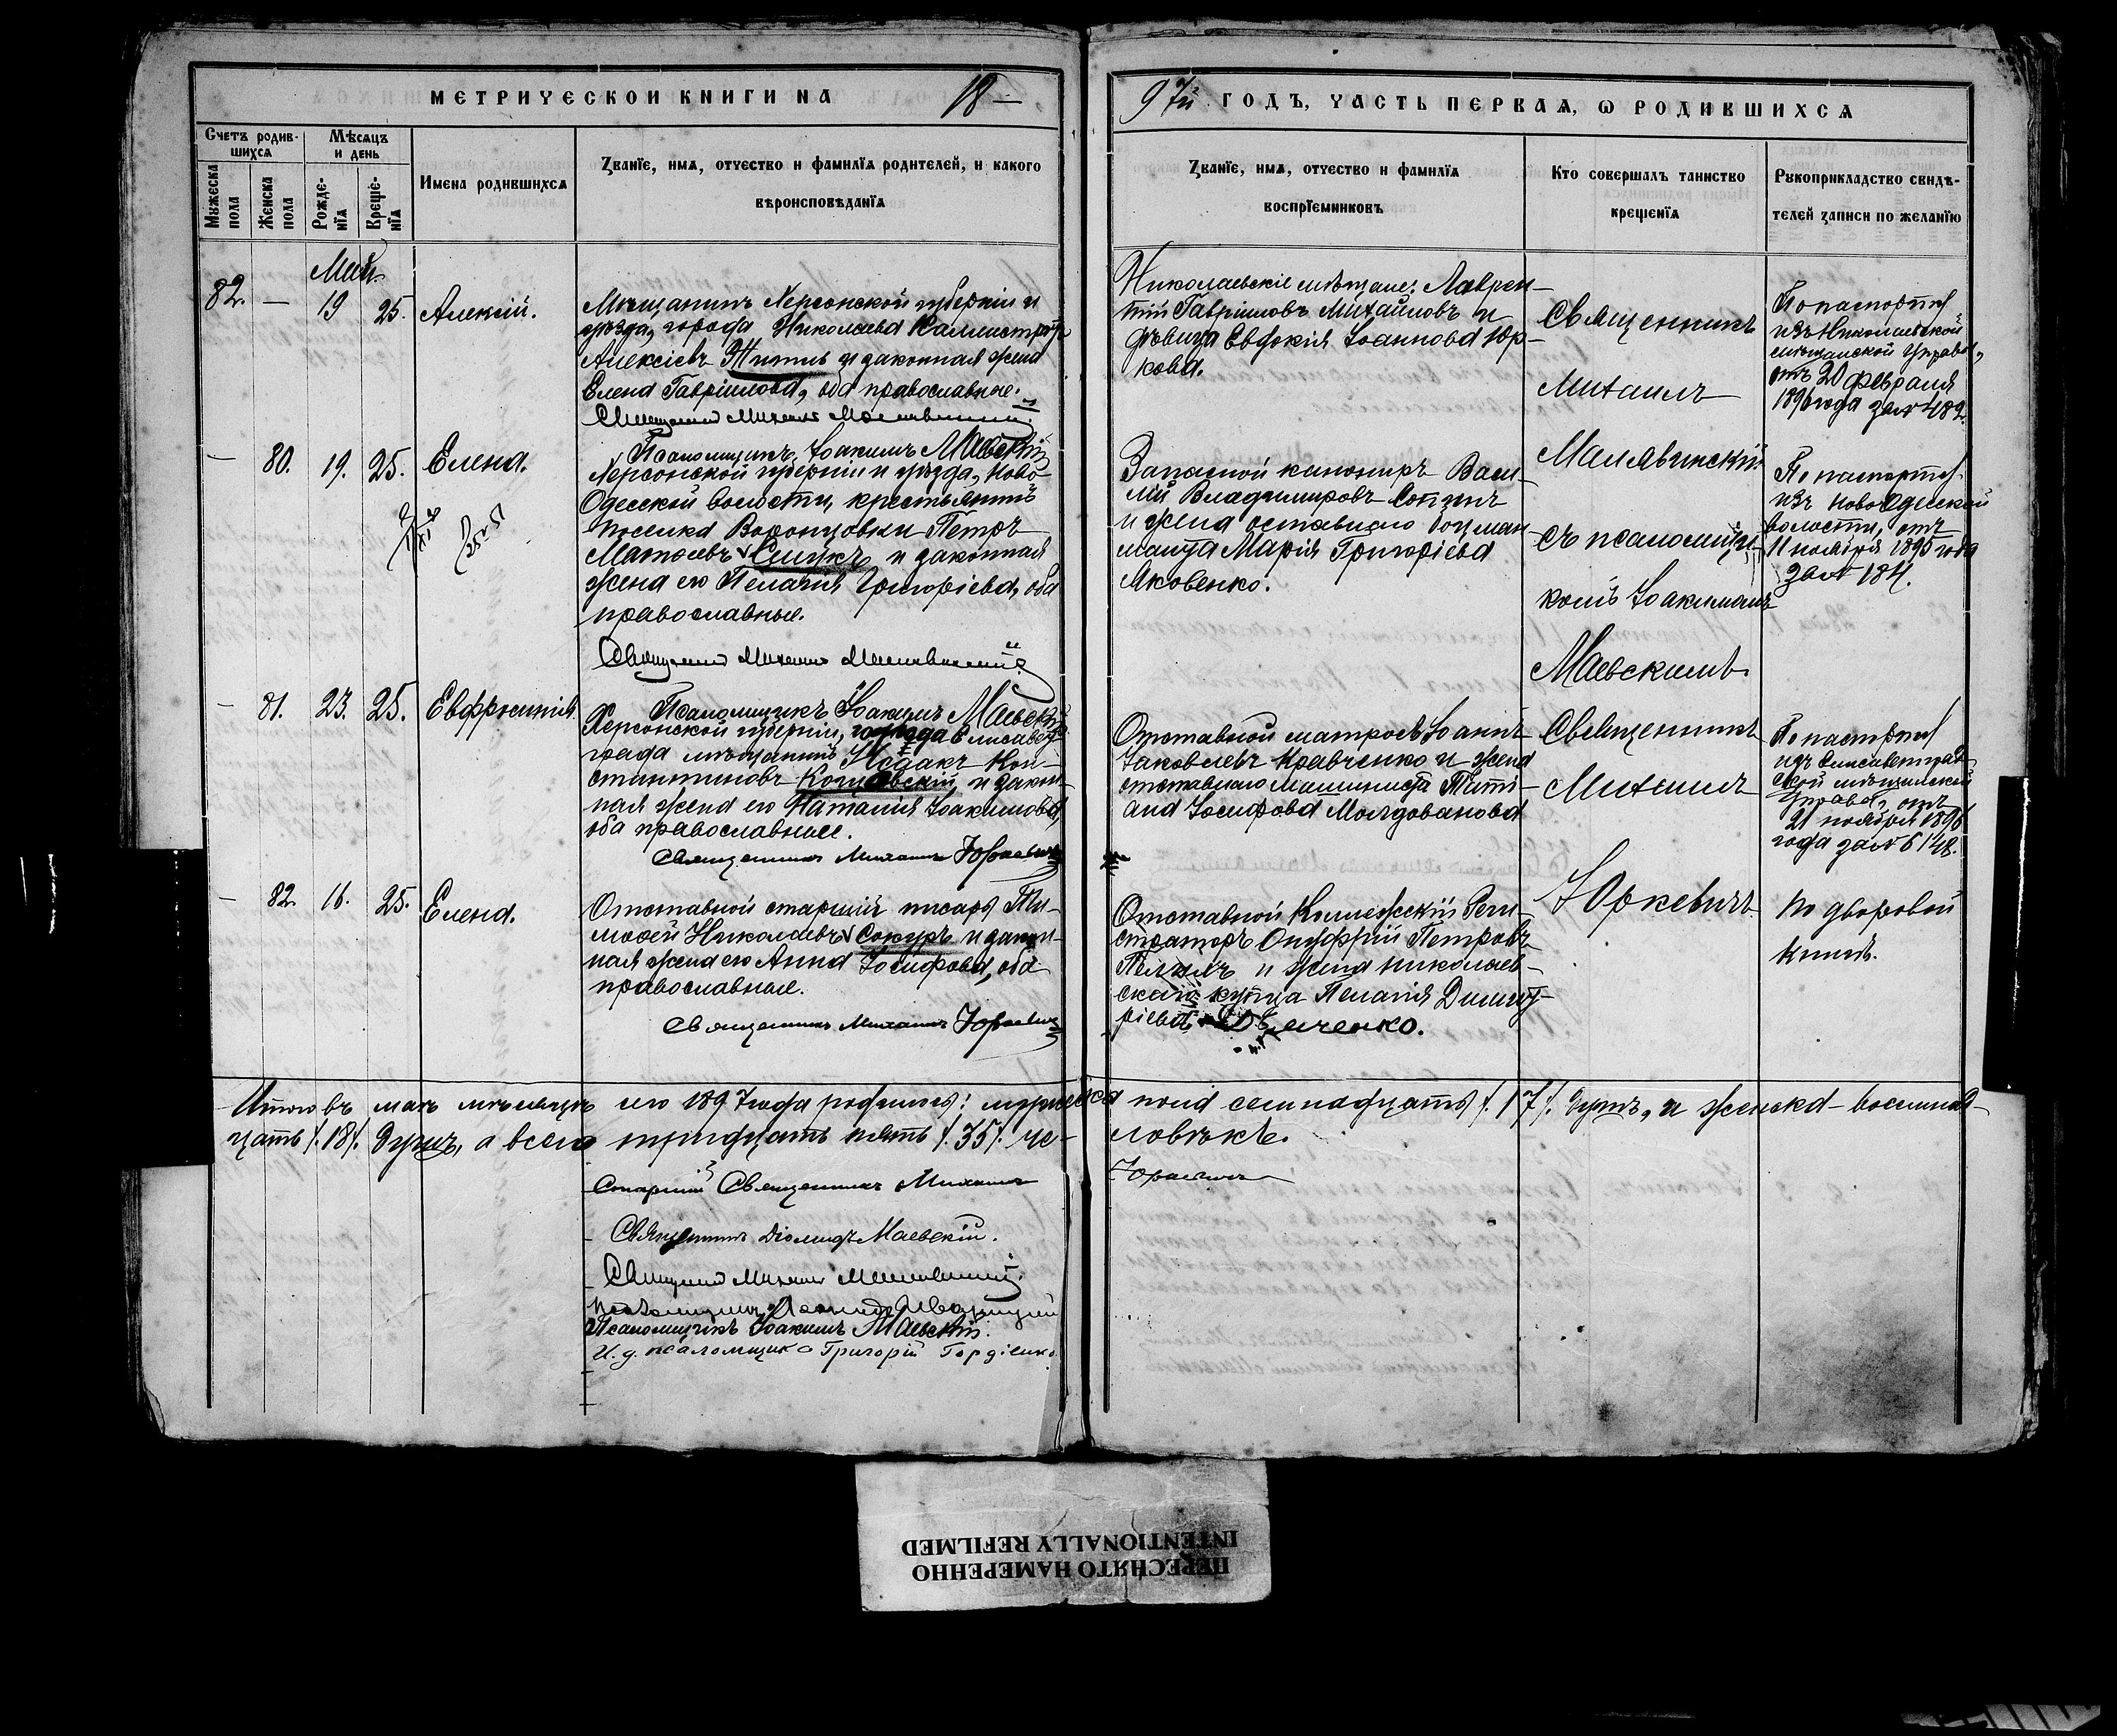 МЕТРИЧЕСКОЙ КНИГИ НА 18—
97й ГОДЪ, ЧАСТЬ ПЕРВАЯ, Ѡ РОДИВШИХСЯ
Счетъ родив-
шихся
Мѣсяцъ
и день
Мужеска
пола
Женска
пола
Рожде-
нїя
Креще-
нїя
Имена родившихся
Званїе, имя, отчество и фамилїя родителей, и какого
вѣроисповѣданїя
Званїе, имя, отчество и фамилїя
воспрїемниковъ
Кто совершалъ таинство
крещенїя
Рукоприкладство свидѣ-
телей записи по желанїю
Май.
82. — 19 25. Алексій.
Мѣщанинъ Херсонской губерніи и
уѣзда, города Николаева Каллистратъ
Алексіевъ и законная жена
Елена Гавріилова, оба православные.
Священникъ Михаилъ Малявинскій.
Николаевскіе мѣщане: Лаврен-
тій Гавріиловъ Михайловъ и
дѣвица Евдокія Іоаннова Юр-
кова.
Священникъ
Михаилъ
Малявинскій
съ псаломщи-
комъ Іоакимомъ
Маевскимъ.
По паспорту
изъ Николаевской
мѣщанской Управы,
отъ 20 февраля
189 года за № 482.
Псаломщикъ Іоакимъ Маевскій
— 80. 19. 25. Елена.
Херсонской губерніи и уѣзда, Ново-
Одесской волости, крестьянинъ
поселка Воронцовки Петръ
Матѳеевъ и законная
жена его Пелагія Григоріева, оба
православные.
Священникъ Михаилъ Малявинскій.
Запасной канониръ Васи-
лій Владиміровъ Сопинъ
и жена оставнаго боцман-
мата Марія Григоріева
Яковенко.
По паспорту
изъ Новоодесской
волости, отъ
11 ноября 1895 года
за № 184.
Псаломщикъ Іоакимъ Маевскій
— 81. 23. 25. Евфросинія.
Херсонской губерніи, города Елисавет-
града мѣщанинъ Исаакъ Кон-
стантиновъ и закон-
ная жена его Наталія Іоакимова,
оба православные.
Священникъ Михаилъ Юркевичъ
Отставной матросъ Іоаннъ
Іаковлевъ Кравченко и жена
отставнаго машиниста Тати-
ана Іосифова Молдованова
Священникъ
Михаилъ
Юркевичъ
По паспорту
изъ Елисаветград-
ской мѣщанской
Управы, отъ
21 ноября 1896
года за № 6148.
— 82. 16. 25. Елена.
Отставной старшій писарь Ти-
моѳей Николаевъ Сокуръ и закон-
ная жена его Анна Іосифова, оба
православные.
Священникъ Михаилъ Юркевичъ
Отставной Коллежскій Реги-
страторъ Онуфрій Петровъ
и жена николаев-
скаго купца Пелагія Димит-
ріева
По дворовой
книгѣ.
Итого въ маѣ мѣсяцѣ сего 1897 года родилось: мужеска пола семнадцать /.17/. душъ, и женска — восемнад-
цать /.18/. душъ, а всего тридцать пять /.35/. че-
ловѣкъ.
Старшій Священникъ Михаилъ Юркевичъ
Священникъ Діомидъ Маевскій.
Священникъ Михаилъ Малявинскій.
Псаломщикъ Леонидъ
Псаломщикъ Іоакимъ Маевскій.
И. д. псаломщика Григорій Гордіенко.
ПЕРЕСНЯТО НАМЕРЕННО
INTENTIONALLY REFILMED